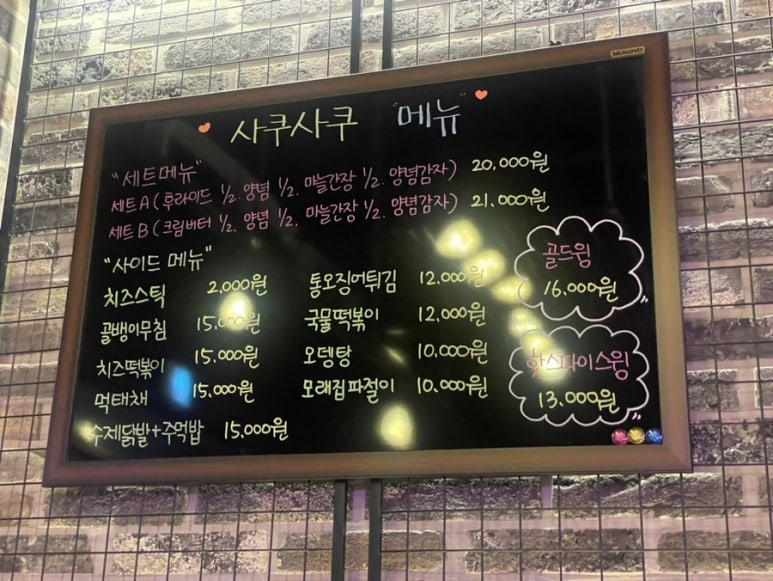 MUNGYO
사쿠사쿠 "메뉴"
"세트메뉴"
세트A (후라이드 1/2. 양념 1/2. 마늘간장 1/2. 양념감자) 20,000원
세트B (크림버터 1/2. 양념 1/2. 마늘간장 1/2. 양념감자) 21,000원
"사이드 메뉴"
치즈스틱 2,000원
골뱅이무침 15,000원
치즈떡볶이 15,000원
먹태채 15,000원
수제닭발+주먹밥 15,000원
통오징어튀김 12,000원
국물떡볶이 12,000원
오뎅탕 10,000원
모래집파절이 10,000원
골드윙
16,000원
핫스파이스윙
13,000원